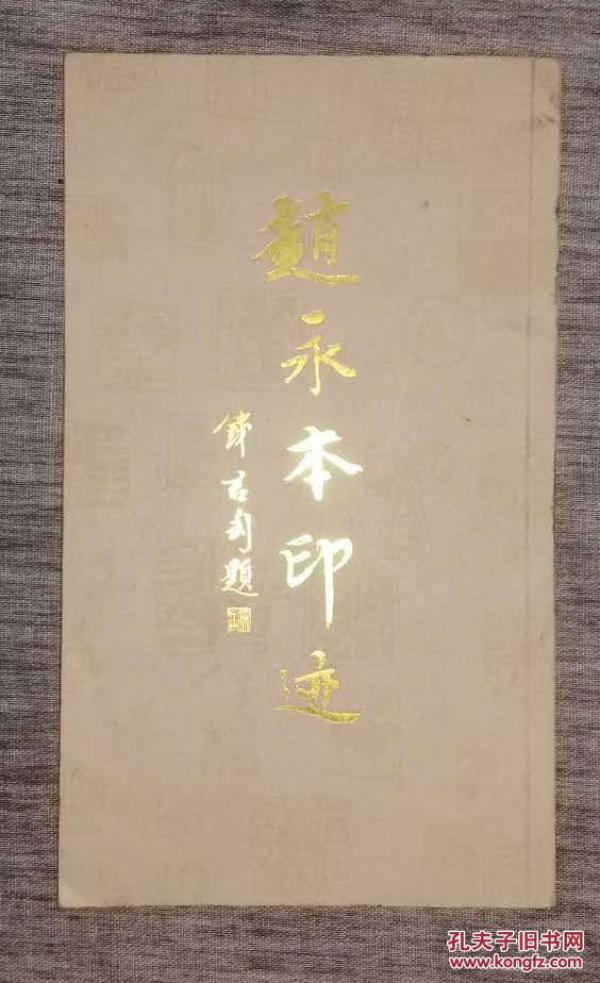 趙永本印迹
錢君匋題
孔夫子旧书网
www.kongfz.com